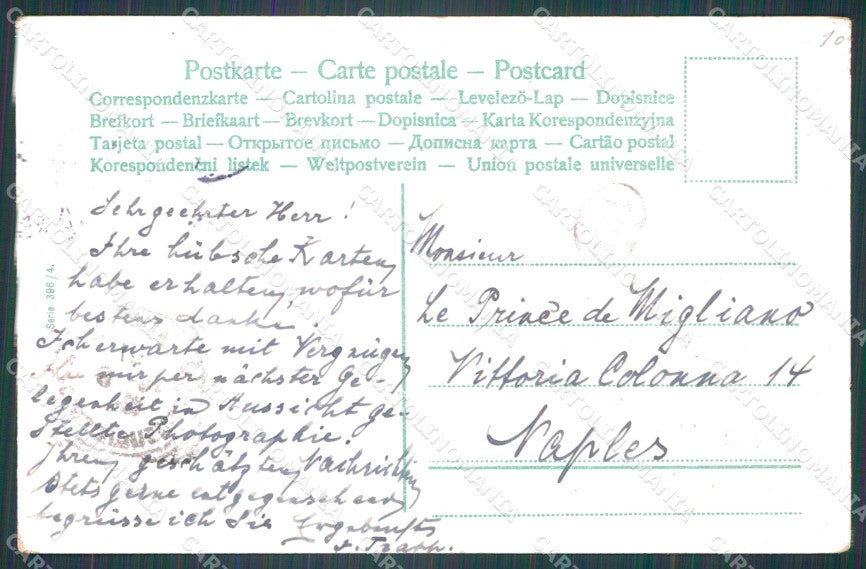 10
Postkarte – Carte postale – Postcard
Correspondenzkarte — Cartolina postale — Levelező-Lap — Dopisnice
Brefkort — Briefkaart — Brevkort — Dopisnica — Karta Korespondenzyjna
Tarjeta postal — Открытое письмо — Дописна карта — Cartão postal
Korespondenčni listek — Weltpostverein — Union postale universelle
Serie 396/4.
Sehrgeehrter Herr!
Ihre hübsche Karten
habe erhalten, wofür
bestens danke.
Ich erwarte mit Vergnügen
mir per nächster Ge-
legenheit in Aussicht ge-
stellte Photographie.
Ihren geschätzten Nachrichten
stets gerne entgegensehend
begrüsse ich Sie Ergebenst
Trapp.
Monsieur
Le Prince de Migliano
Vittoria Colonna 14
Naples
CARTOLINOMANIA